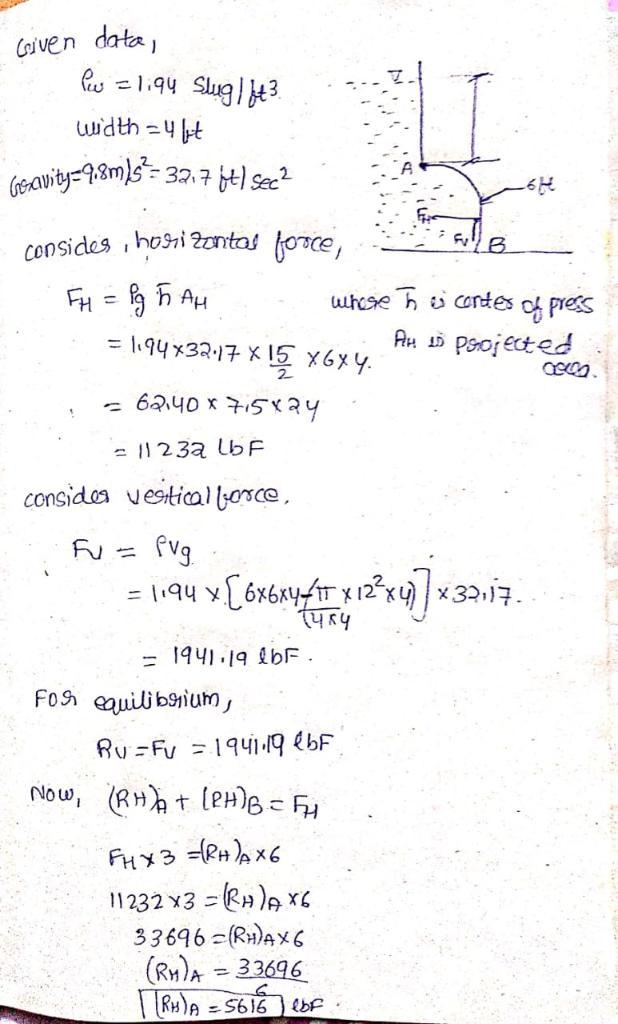 Given data,
ρw = 1.94 Slug/ft3
width = 4 ft
Gravity = 9.8m/s² = 32.7 ft/sec²
A
6ft
FH
Fv
B
consider, horizontal force,
FH = ρg h̄ AH where h̄ is center of press
= 1.94×32.17 × 15/2 ×6×4. AH is projected area.
= 62.40 × 7.5×24
= 11232 lbF
consider vertical force.
Fv = ρvg
= 1.94 × [6×6×4-(π/4×4 × 12²×4)] ×32.17.
= 1941.19 lbF.
For equilibrium,
Rv = Fv = 1941.19 lbF
Now, (RH)A + (RH)B = FH
FH×3 = (RH)A×6
11232×3 = (RH)A×6
33696 = (RH)A×6
(RH)A = 33696/6
(RH)A = 5616 lbF.